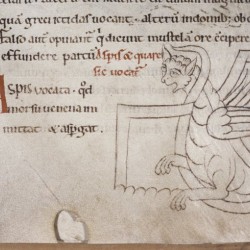 quā greci ictidas uocant. alterū in domib; ob
falso aut̄ opinant̄ q̇ dicunt mustelā ore ↄcipere
effundere partū. Aspis & quare
sic uocat̄
Aspis uocata. qđ
morsu uenena im
mittat & aspgat.